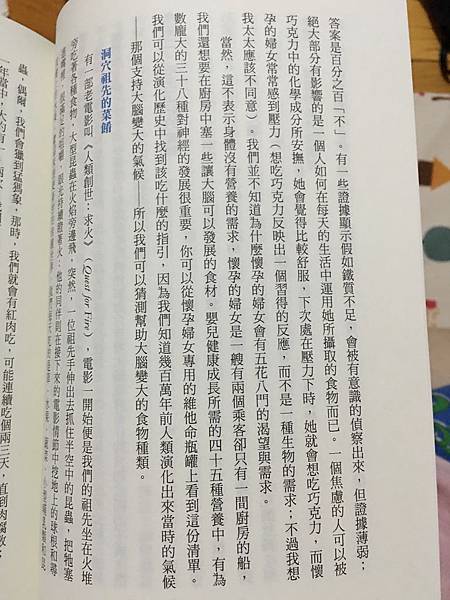 答案是百分之百「不」。有一些證據顯示假如鐵質不足，會被有意識的偵察出來，但證據薄弱；
絕大部分有影響的是一個人如何在每天的生活中運用她所攝取的食物而已。一個焦慮的人可以被
巧克力中的化學成分所安撫，她會覺得比較舒服，下次處在壓力下時，她就會想吃巧克力，而懷
孕的婦女常常感到壓力（想吃巧克力反映出一個習得的反應，而不是一種生物的需求；不過我想
我太太應該不同意）。我們並不知道為什麼懷孕的婦女會有五花八門的渴望與需求。
當然，這不表示身體沒有營養的需求，懷孕的婦女是一艘有兩個乘客卻只有一間廚房的船，
我們還想要在廚房中塞一些讓大腦可以發展的食材。嬰兒健康成長所需的四十五種營養中，有為
數龐大的三十八種對神經的發展很重要，你可以從懷孕婦女專用的維他命瓶罐上看到這份清單。
我們可以從演化歷史中找到該吃什麼的指引，因為我們知道幾百萬年前人類演化出來當時的氣候
——那個支持大腦變大的氣候——所以我們可以猜測幫助大腦變大的食物種類。
洞穴祖先的菜餚
有一部老電影叫《人類創世：求火》（Quest for Fire），電影一開始便是我們的祖先坐在火堆
旁吃著各種食物，大型昆蟲在火焰旁邊飛，突然，一位祖先手伸出去抓住半空中的昆蟲，把牠塞
他的同伴則在接下來的電影情節中挖地上的球根和尋
蟲，偶爾，我們會獵到猛獁象，那時，我們就會有紅肉吃，可能連續吃個兩三天，直到肉腐敗；